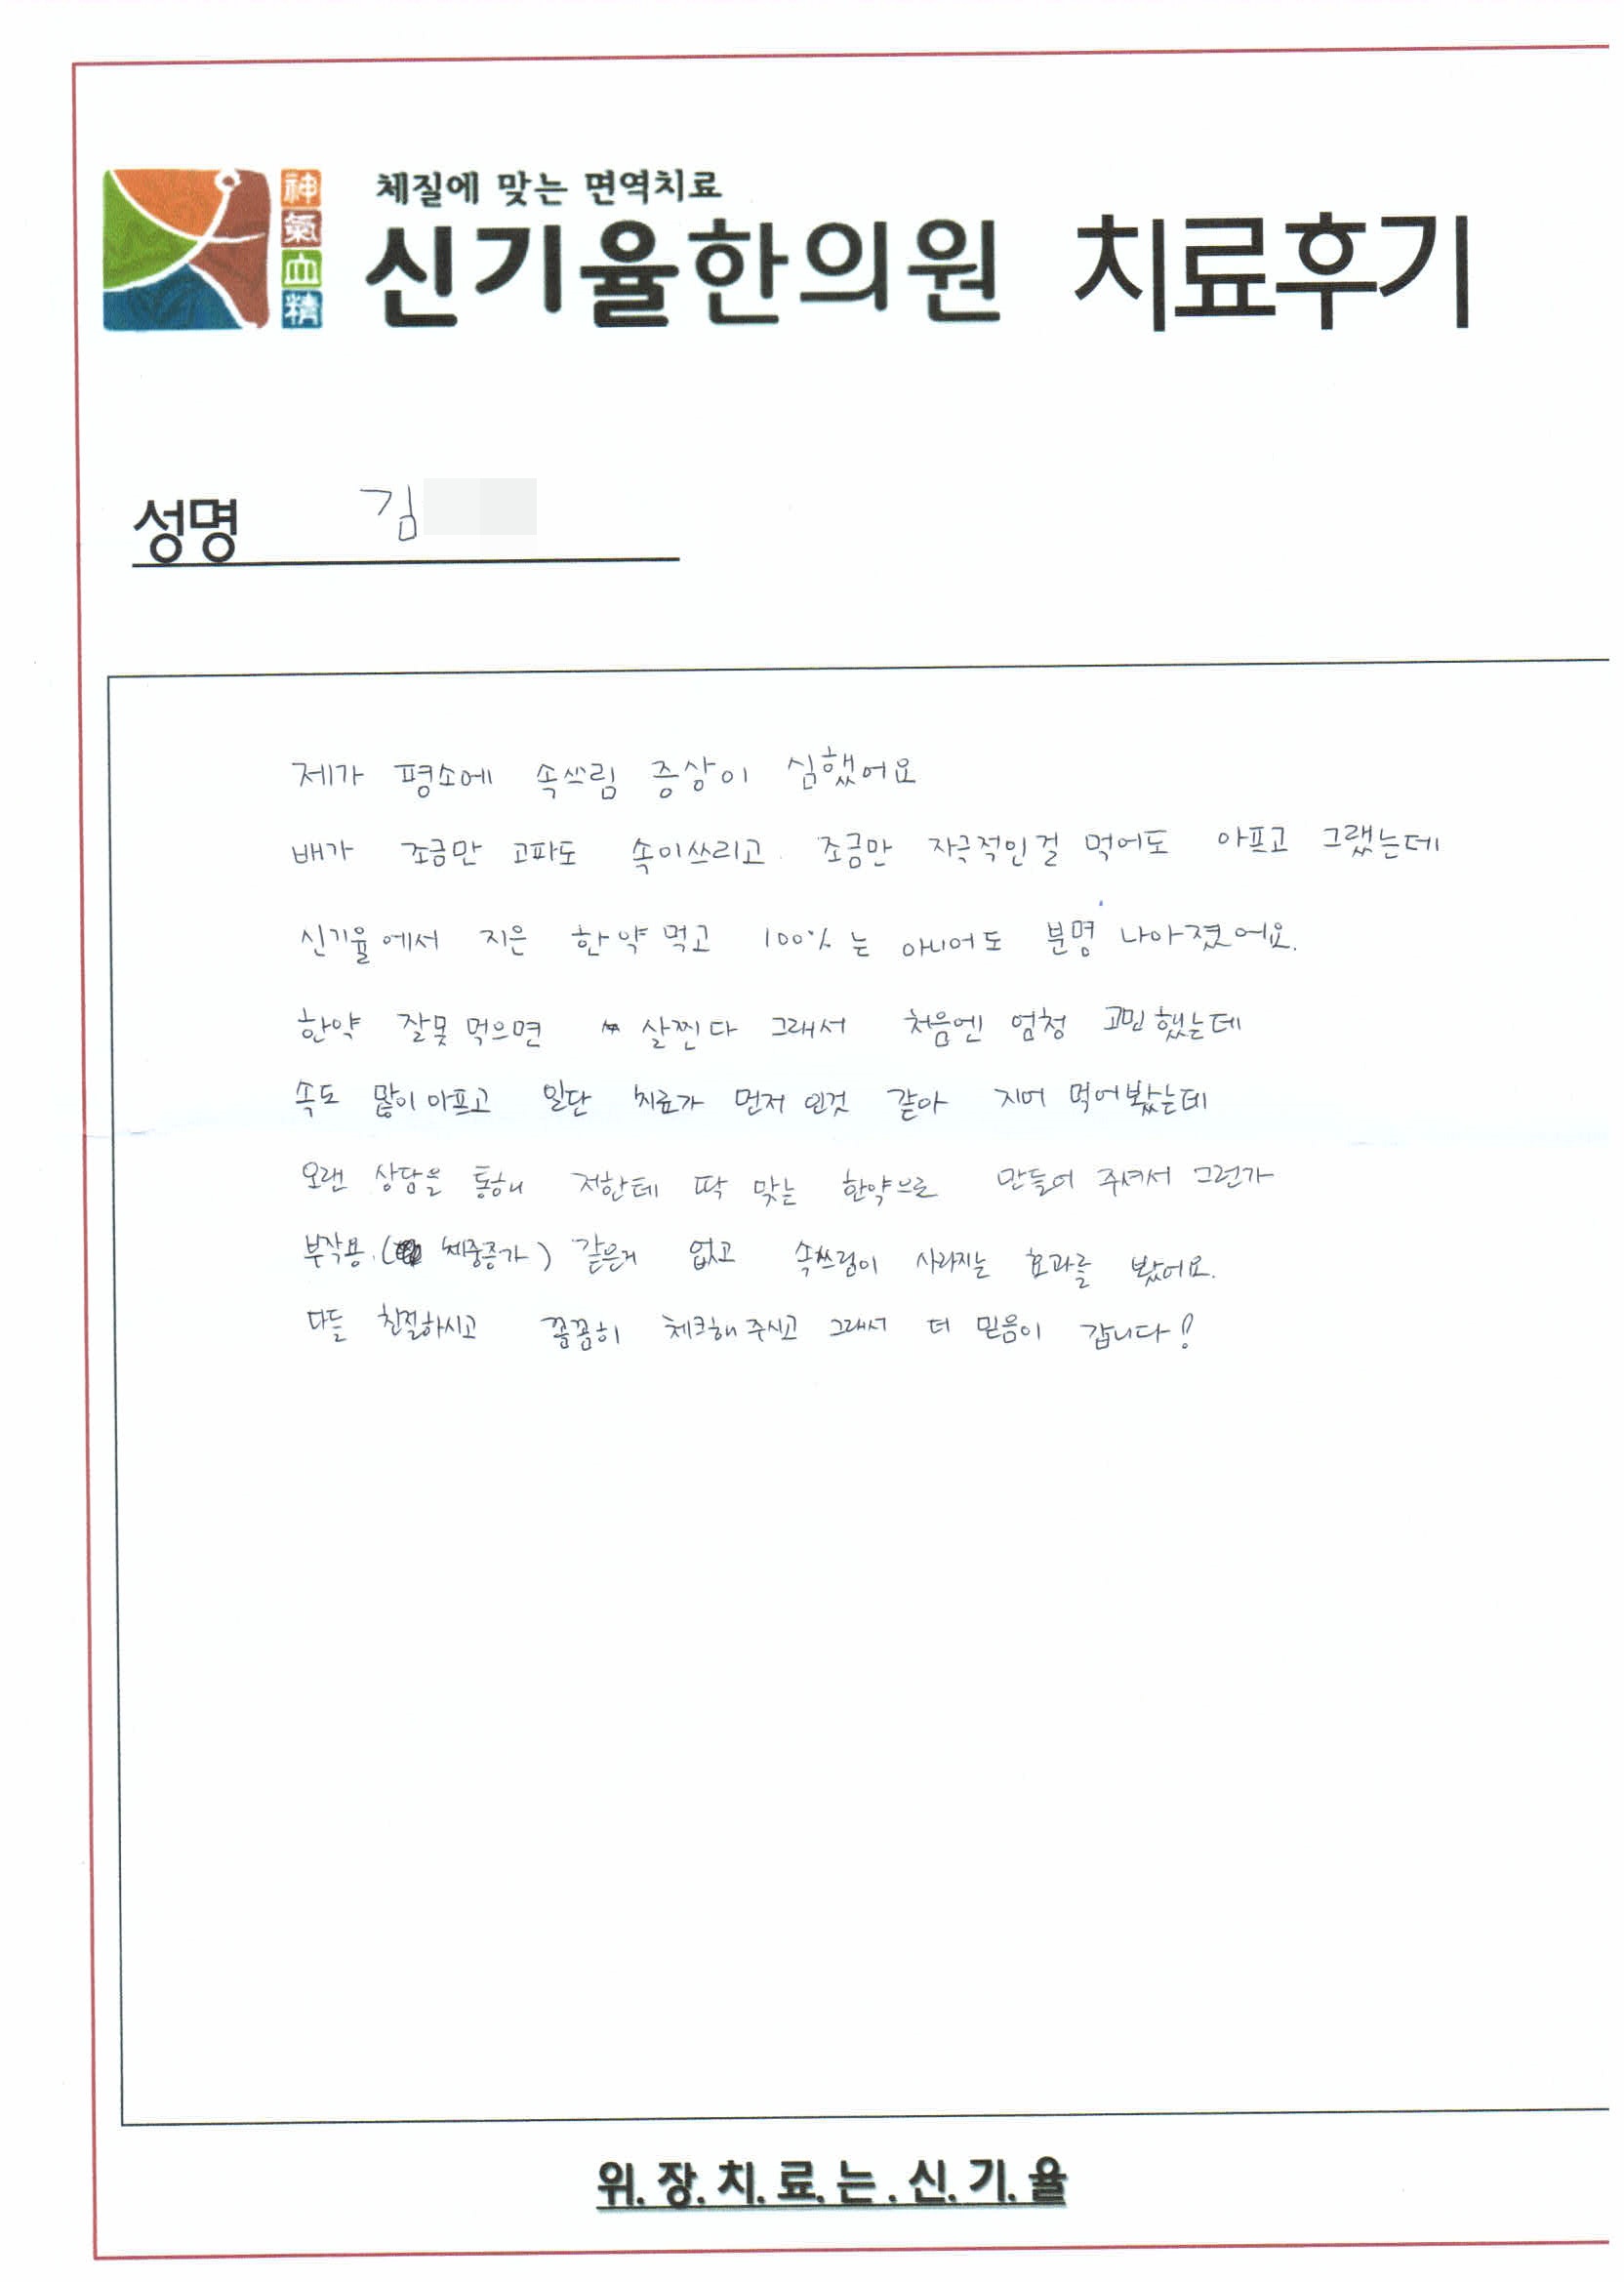 체질에 맞는 면역치료
神氣血精
신기율한의원 치료후기
성명 김
제가 평소에 속쓰림 증상이 심했어요
배가 조금만 고파도 속이쓰리고 조금만 자극적인걸 먹어도 아프고 그랬는데
신기율에서 지은 한약먹고 100%는 아니어도 분명 나아졌어요.
한약 잘못 먹으면 살찐다 그래서 처음엔 엄청 고민했는데
속도 많이 아프고 일단 치료가 먼저 인것 같아 지어 먹어봤는데
오랜 상담을 통해 저한테 딱 맞는 한약으로 만들어 주셔서 그런가
부작용.( 체중증가) 같은거 없고 속쓰림이 사라지는 효과를 봤어요.
다들 친절하시고 꼼꼼히 체크해 주시고 그래서 더 믿음이 갑니다!
위.장.치.료.는.신.기.율